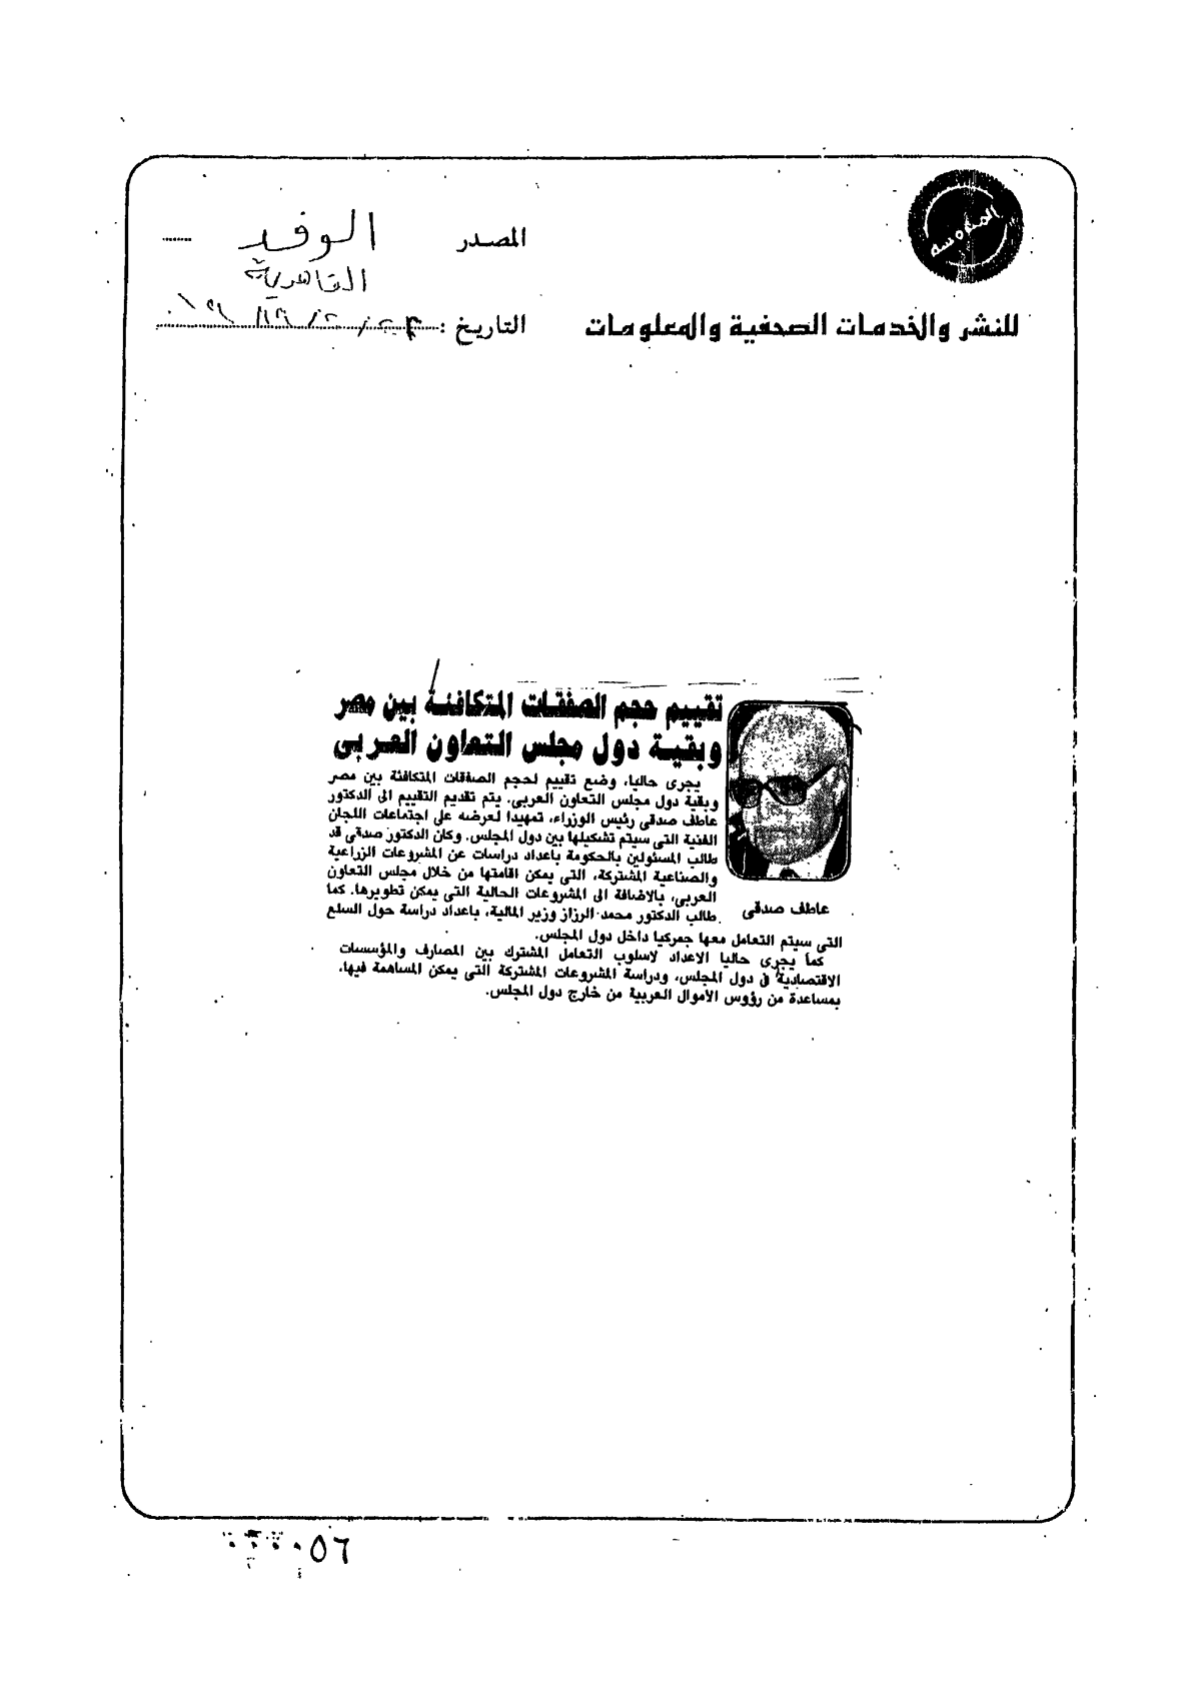 المصدر الوفد
القاهرية
للنشر والخدمات الصحفية والمعلومات
التاريخ :
تقييم حجم الصفقات المتكافئة بين مصر
وبقية دول مجلس التعاون العربى
يجرى حاليا، وضع تقييم لحجم الصفقات المتكافئة بين مصر
وبقية دول مجلس التعاون العربى. يتم تقديم التقييم الى الدكتور
عاطف صدقى رئيس الوزراء، تمهيدا لعرضه على اجتماعات اللجان
الفنية التى سيتم تشكيلها بين دول المجلس. وكان الدكتور صدقى قد
طالب المسئولين بالحكومة باعداد دراسات عن المشروعات الزراعية
والصناعية المشتركة، التى يمكن اقامتها من خلال مجلس التعاون
العربى، بالاضافة الى المشروعات الحالية التى يمكن تطويرها. كما
طالب الدكتور محمد الرزاز وزير المالية، باعداد دراسة حول السلع
عاطف صدقى
التى سيتم التعامل معها جمركيا داخل دول المجلس.
كما يجرى حاليا الاعداد لاسلوب التعامل المشترك بين المصارف والمؤسسات
الاقتصادية فى دول المجلس، ودراسة المشروعات المشتركة التى يمكن المساهمة فيها،
بمساعدة من رؤوس الأموال العربية من خارج دول المجلس.
٠٥٦